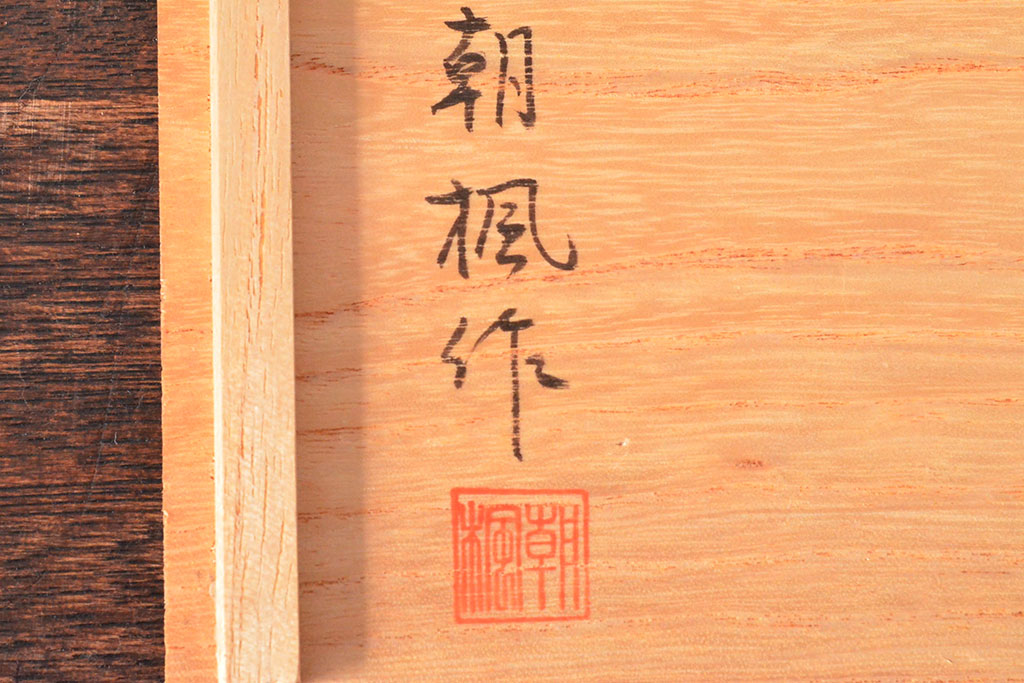 朝楓作
朝楓